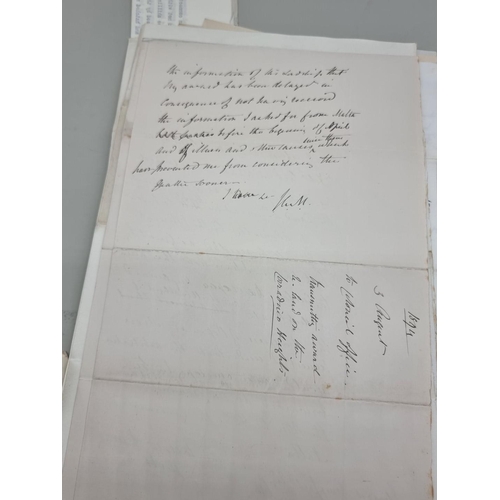 the information of His Lordship that
my award has been delayed in
consequence of not having received
the information I asked for from Malta
before the beginning of April
and of illness and other causes which
since then
have prevented me from considering the
matter sooner.
I have &c
1894
3 August
to Colonial Office
transmitting award
to land on the
Corradino Heights